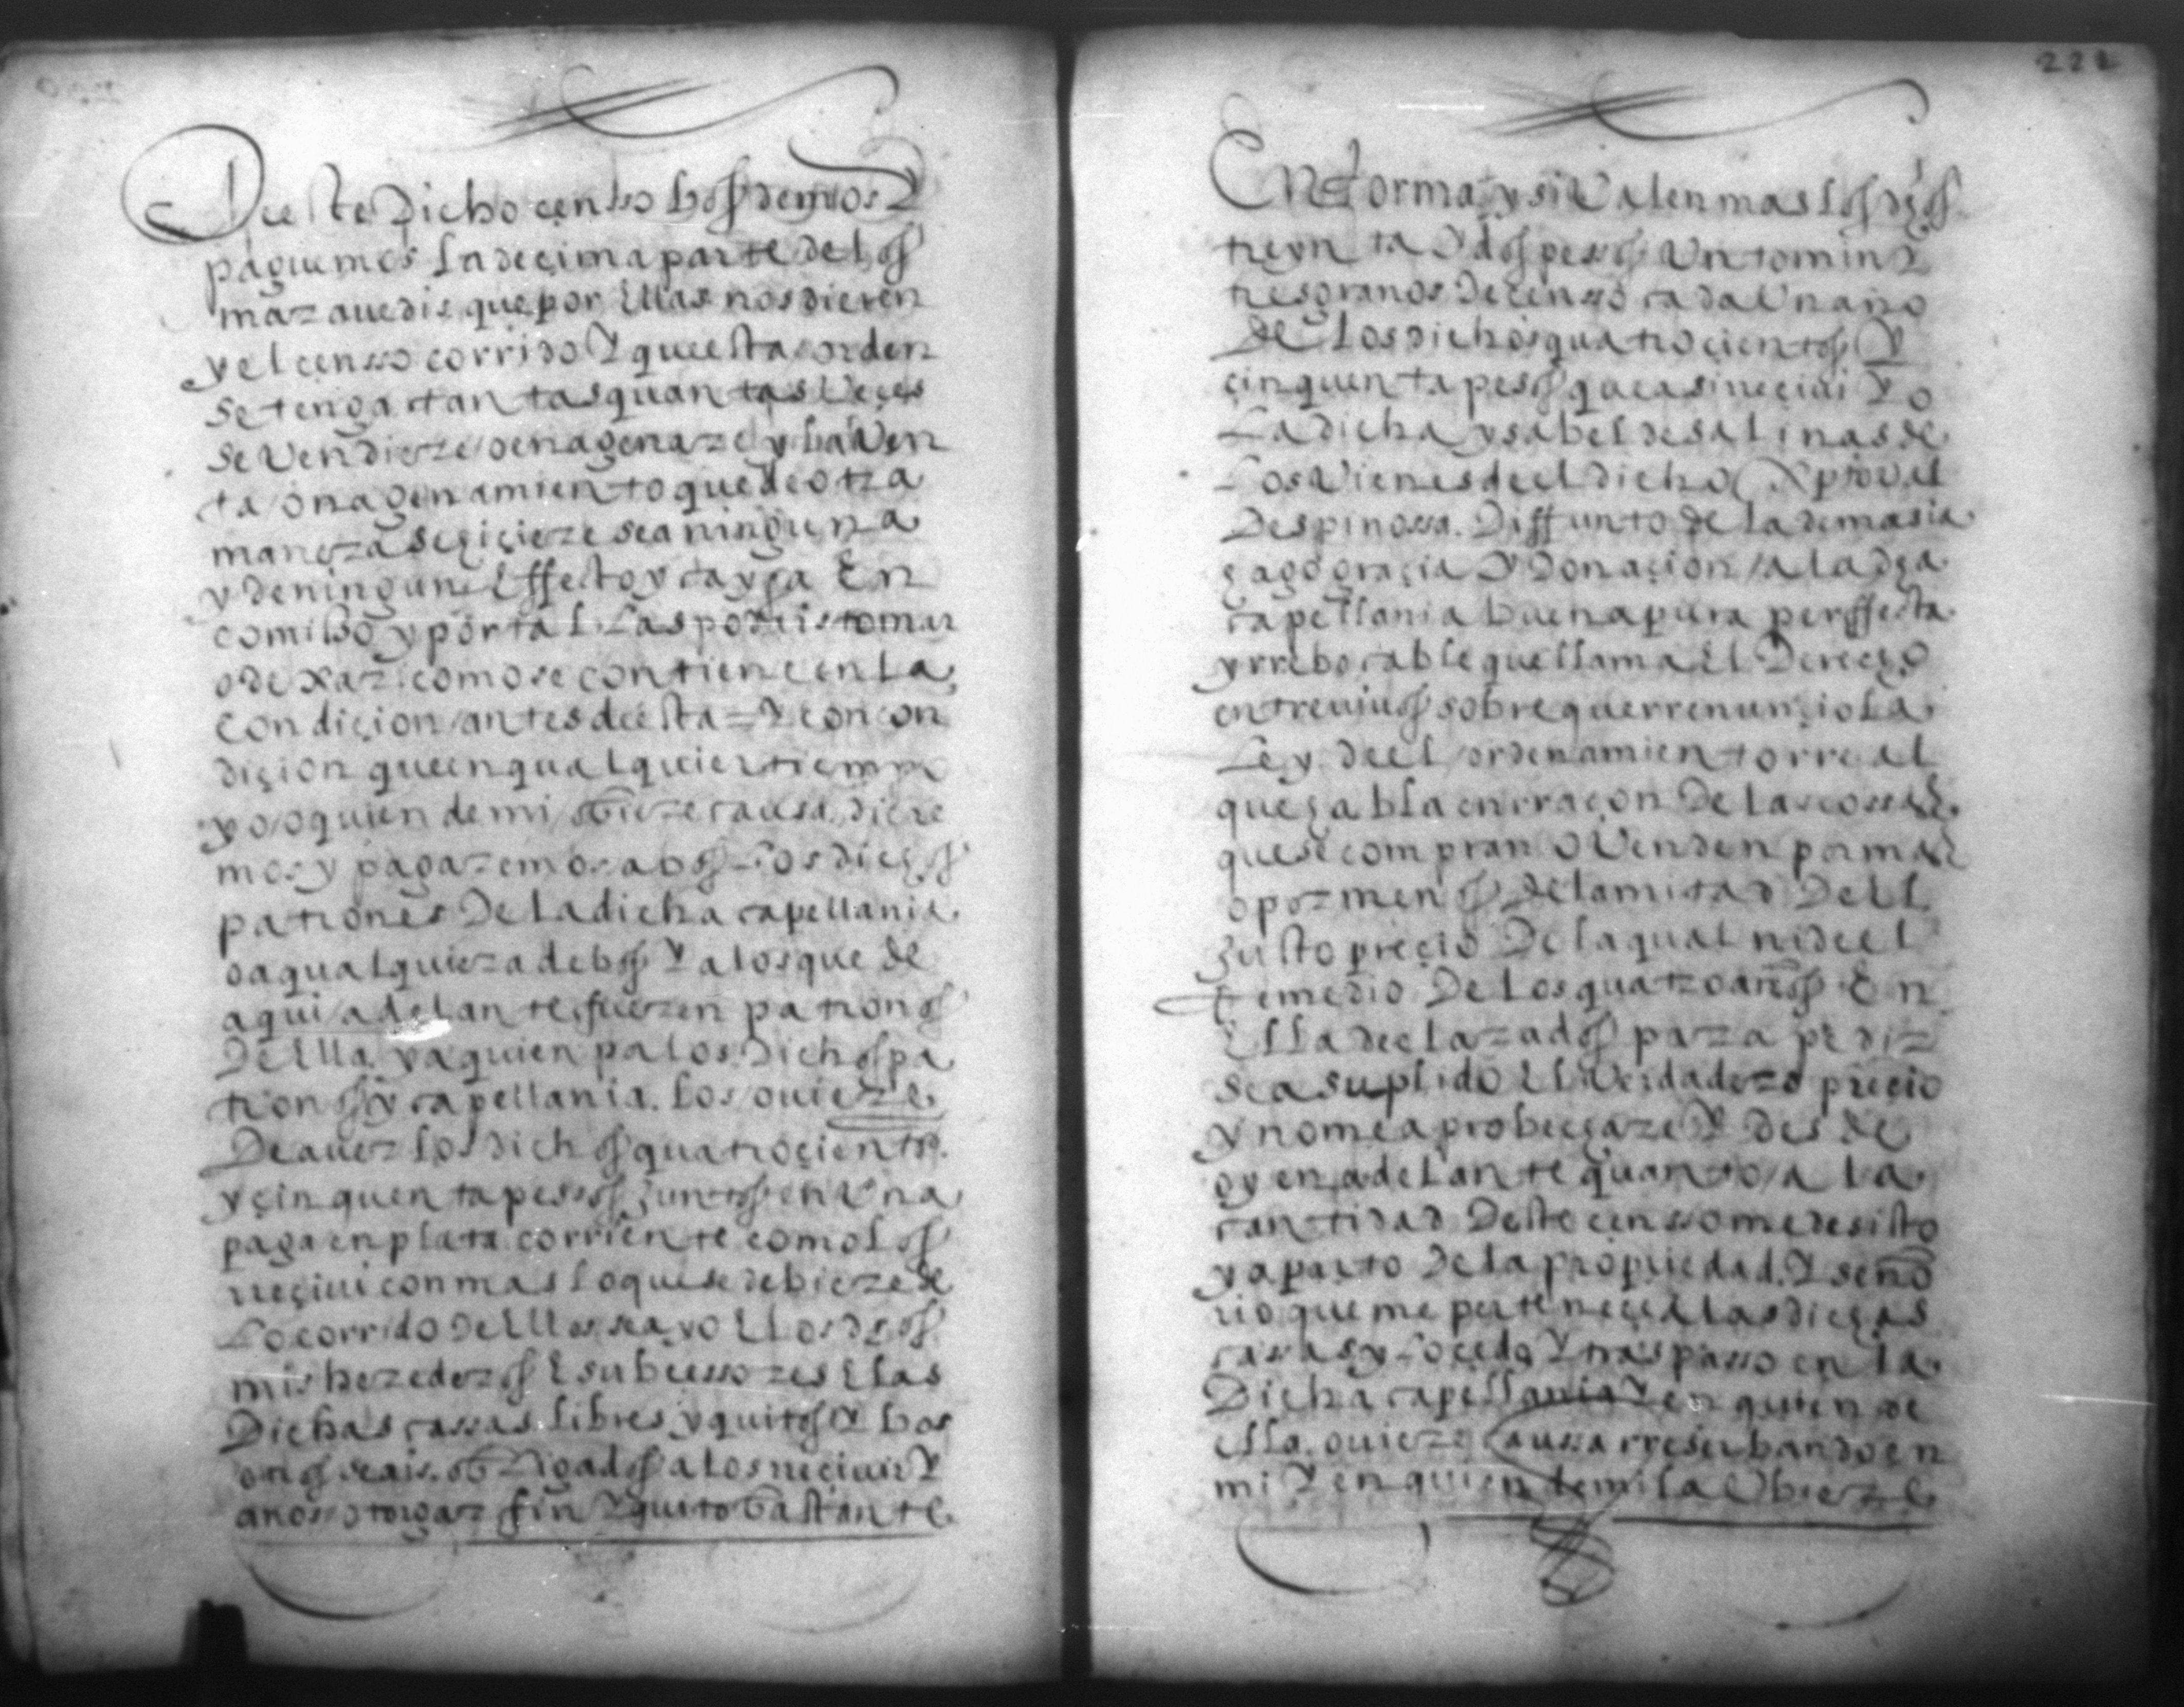 Deeste dicho censso bos demos y
paguemos la deçima parte de los
marauedis que por ellas nos dieren
y el censso corrido y que esta orden
se tenga tantas quantas veçes
se vendiere o enagenare y la ven
ta o nagenamiento que de otra
manera se hiçiere sea ninguna
y de ningun effecto y cayga en
comisso y por tal las podais tomar
o dexar como se contiene en la
condiçion antes de esta = y con con
diçion que en qualquier tiempo
yo o quien de mi obiere causa diere
mos y pagaremos a bos los dichos
patrones de la dicha capellania
o a qualquiera de bos y a los que de
aqui adelante fueren patronos
de ella y a quien pa los dichos pa
tronos y capellania los ouiere
de auer los dichos quatroçientos
y çinquenta pesos juntos en vna
paga en plata corriente como los
rreçiui con mas lo que se debiere de
lo corrido de ellos sea yo e los dhos
mis herederos e subcessores e las
dichas cassas libres y quitos y bos
seais obligados a los rreçiuir y
a nos otorgar fin y quito bastante
En forma y si valen mas los dhos
treynta y dos pesos vn tomin y
tres granos de censso cada vn año
de los dichos quatroçientos y
çinquenta pesos que asi reçiui yo
la dicha ysabel de salinas de
los vienes de el dicho xpioval
despinossa diffunto de la demasia
hago graçia y donaçion a la dha
capellania buena pura perffecta
y rrebocable que llama el derecho
entreviuos sobre que rrenunçio la
ley de el ordenamiento rreal
que habla en rraçon de las cossas
que se compran o venden por mas
o por menos de la mitad de el
justo preçio de la qual ni de el
rremedio de los quatro años en
ella declarados para pedir
sea suplido el verdadero preçio
y no me aprobechare y desde
oy en adelante quanto a la
cantidad deste censso me desisto
y aparto de la propiedad y seño
rio que me perteneçe a las dichas
cassas y lo çedo y traspasso en la
dicha capellania y en quien de
ella ouiere caussa rreserbando en
mi y en quien de mi la vbiere